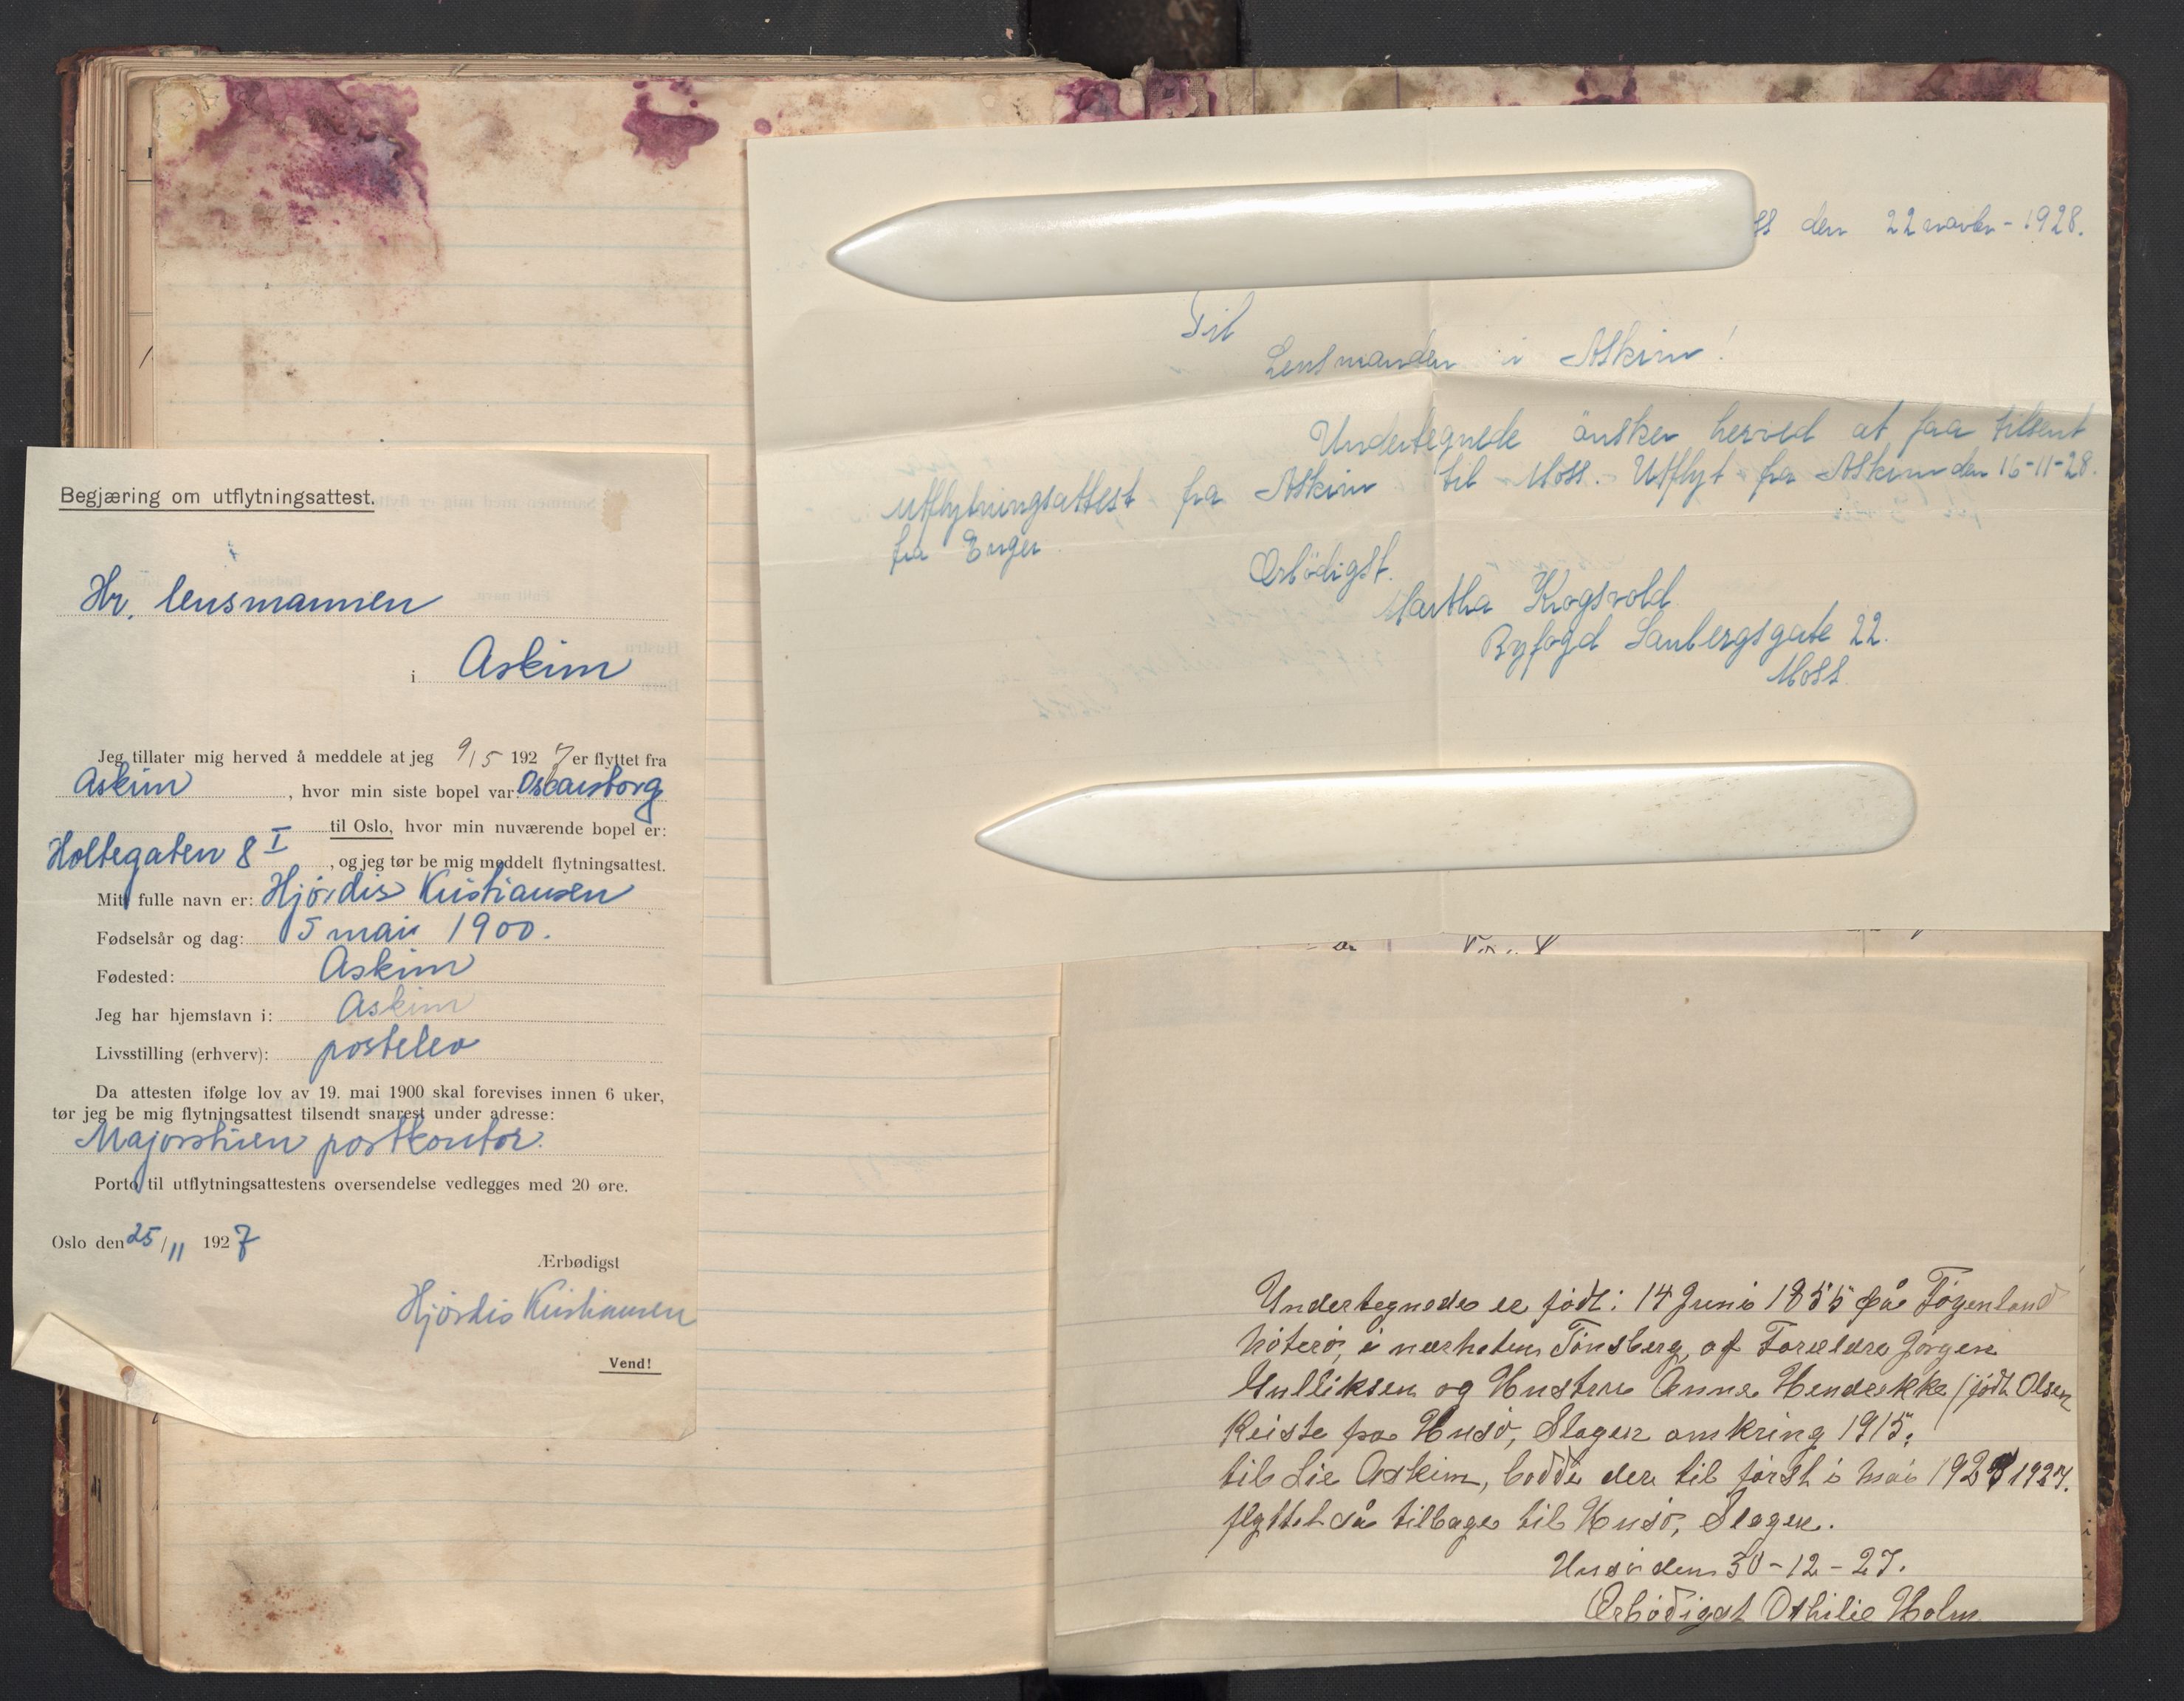 Begjæring om utflytningsattest.
Hr. lensmannen
i Askim
Jeg tillater mig herved å meddele at jeg 9/5 1927 er flyttet fra
Askim, hvor min siste bopel var: Oscarsborg
til Oslo, hvor min nuværende bopel er:
Holtegaten 8 I, og jeg tør be mig meddelt flytningsattest.
Mitt fulle navn er: Hjørdis Kristiansen
Fødselsår og dag: 5 mai 1900.
Fødested: Askim
Jeg har hjemstavn i: Askim
Livsstilling (erhverv): postelev
Da attesten ifølge lov av 19. mai 1900 skal forevises innen 6 uker,
tør jeg be mig flytningsattest tilsendt snarest under adresse:
Majorstuen postkontor.
Porto til utflytningsattestens oversendelse vedlegges med 20 øre.
Oslo den 25/11 1927
Ærbødigst
Hjørdis Kristiansen
Vend!
den 22 novbr - 1928.
Til
Lensmanden i Askim!
Undertegnede önsker herved at faa tilsent
utflytningsattest fra Askim til Moss. Utflyt fra Askim den 16-11-28.
fra Enger
Ærbödigst.
Martha Krogsvold
Byfogd Sandbergsgate 22.
Moss
Undertegnede er født: 14 Juni 1855 på Føgenland
Nøterø, i nærheten Tønsberg, af Forældre Jørgen
Gulliksen og Hustru Anne Hendrikke (født Olsen
Reiste fra Husø, Slagen omkring 1915;
til Lie Askim, bodde der til først i Mai 1927 1927.
flyttet så tilbage til Husø, Slagen.
Husø den 30-12-27.
Ærbødigst Othilie Holm